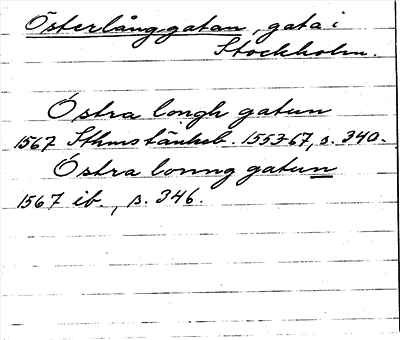 Österlånggatan, gata i
Stockholm.
Östra longh gatun
1567 Sthms tänkeb. 1553-67, s. 340.
Östra lonng gatun
1567 ib., s. 346.